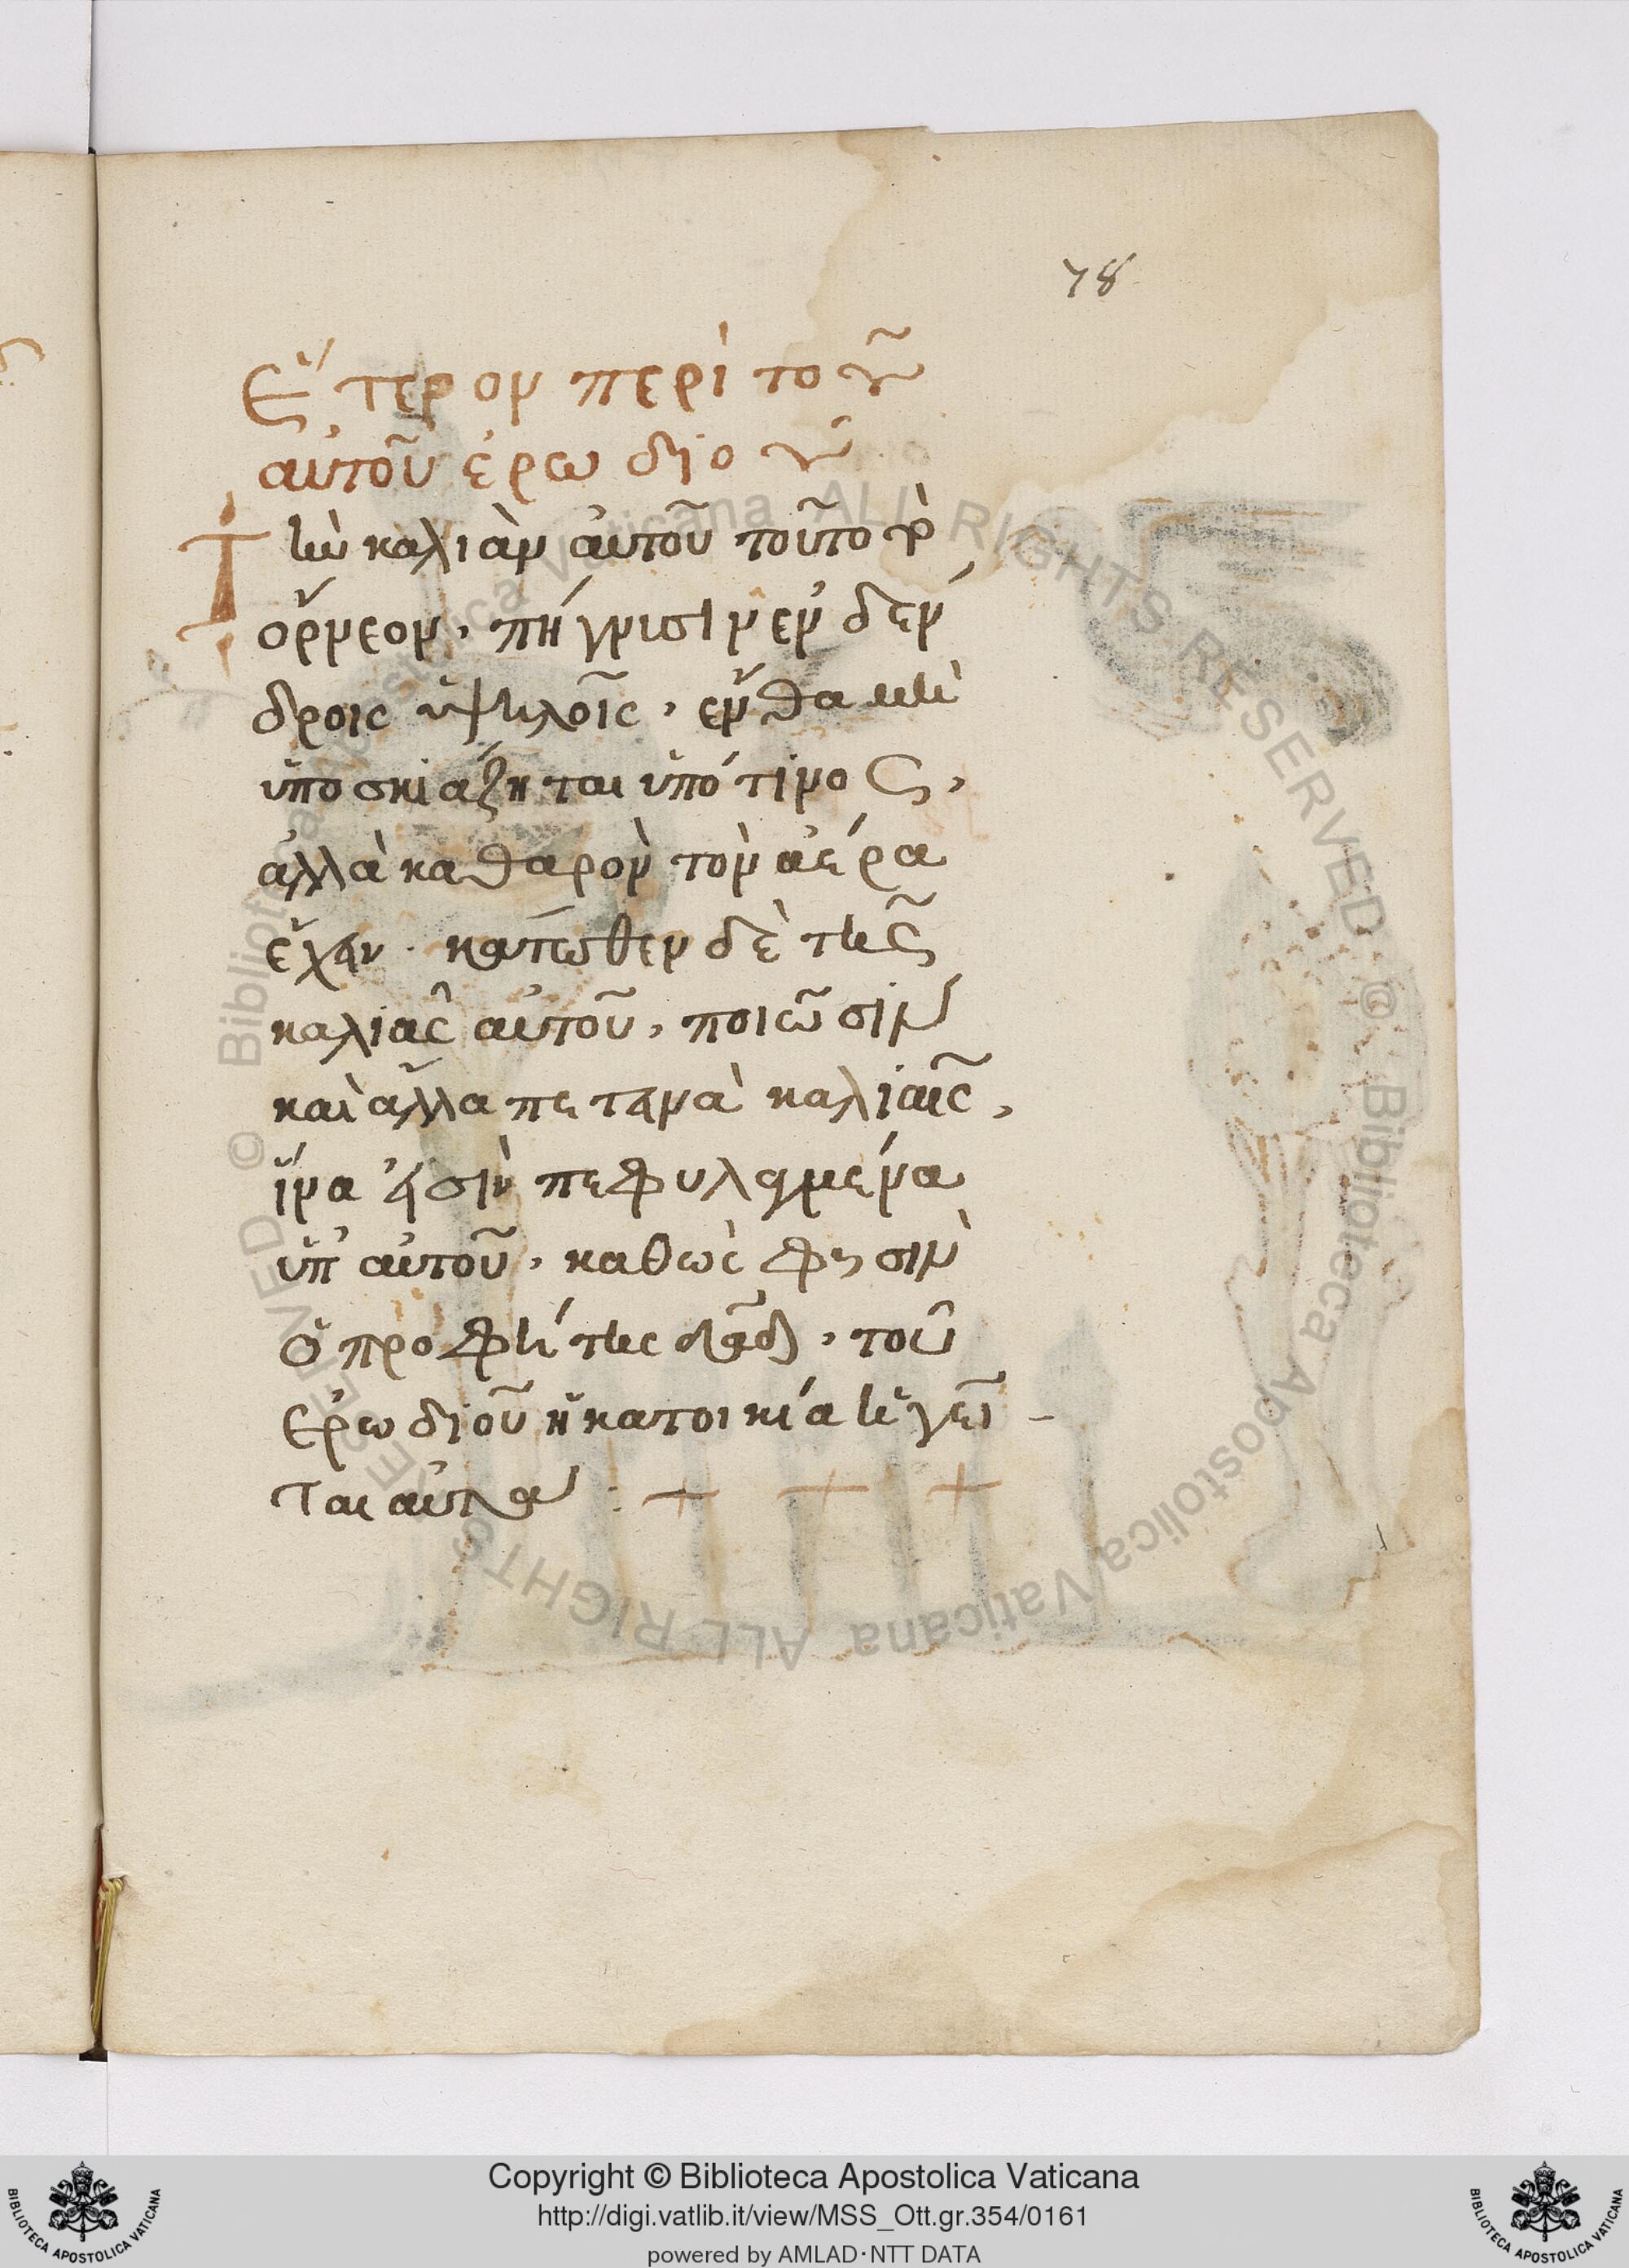 78
Ἕτερον περὶ τοῦ
αὐτοῦ ἐρωδιοῦ
Τὴν καλιὰν αὐτοῦ τοῦτο τὸ
ὄρνεον, πήγνισιν ἐν δέν
δροις ὑψηλοῖς, ἔνθα μὴ
ὑποσκιάζηται ὑπό τινος,
ἀλλὰ καθαρὸν τὸν ἀέρα
ἔχειν. κάτωθεν δὲ τῆς
καλιᾶς αὐτοῦ, ποιῶσιν
καὶ ἄλλα πετεινὰ καλιαῖς,
ἵνα εἰσὶν πεφυλαγμένα
ὑπ' αὐτοῦ, καθὼς φησὶν
ὁ προφήτης δαδ, τοῦ
ἐρωδιοῦ ἡ κατοικία ἡγεῖ
ται αὐτῶν : + + +
© Biblioteca Apostolica Vaticana ALL RIGHTS RESERVED
© Biblioteca Apostolica Vaticana ALL RIGHTS RESERVED
Copyright © Biblioteca Apostolica Vaticana
http://digi.vatlib.it/view/MSS_Ott.gr.354/0161
powered by AMLAD·NTT DATA
BIBLIOTECA APOSTOLICA VATICANA
BIBLIOTECA APOSTOLICA VATICANA